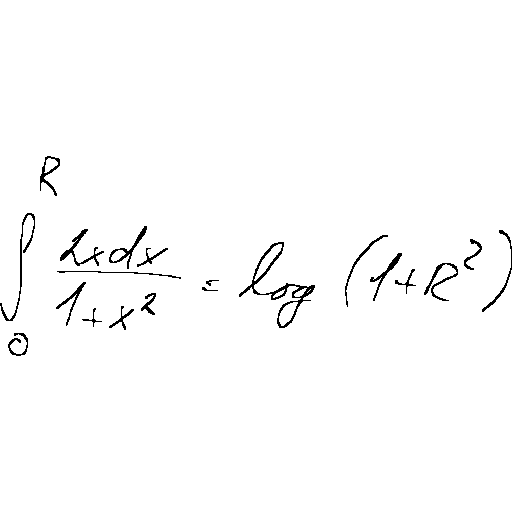 \int_{0}^{R} \frac{2xdx}{1+x^2} = \log(1+R^2)